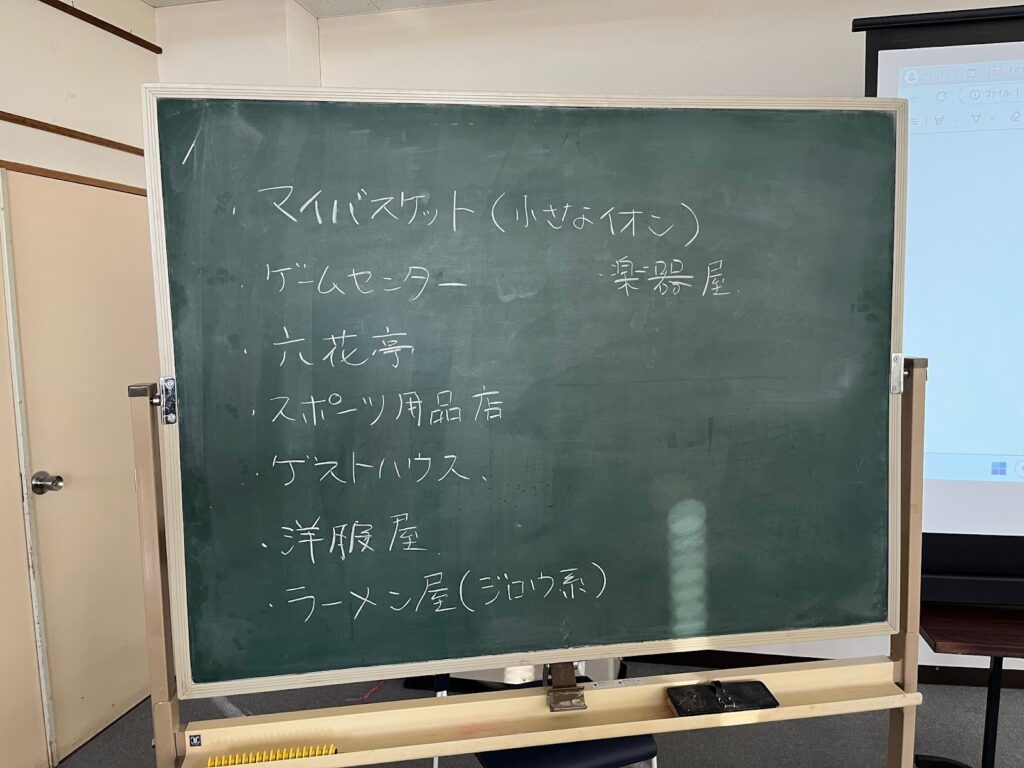 ・マイバスケット(小さなイオン)
・ゲームセンター
・楽器屋
・六花亭
・スポーツ用品店
・ゲストハウス、
・洋服屋
・ラーメン屋(ジロウ系)
ファイル